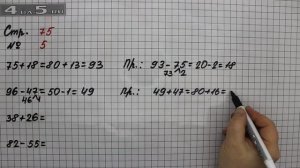 4a5.ru
Стр. 75
№ 5
75+18=80+13=93 Пр.: 93-75=20-2=18
73 2
96-47=50-1=49 Пр.: 49+47=80+16=
46 1
38+26=
82-55=